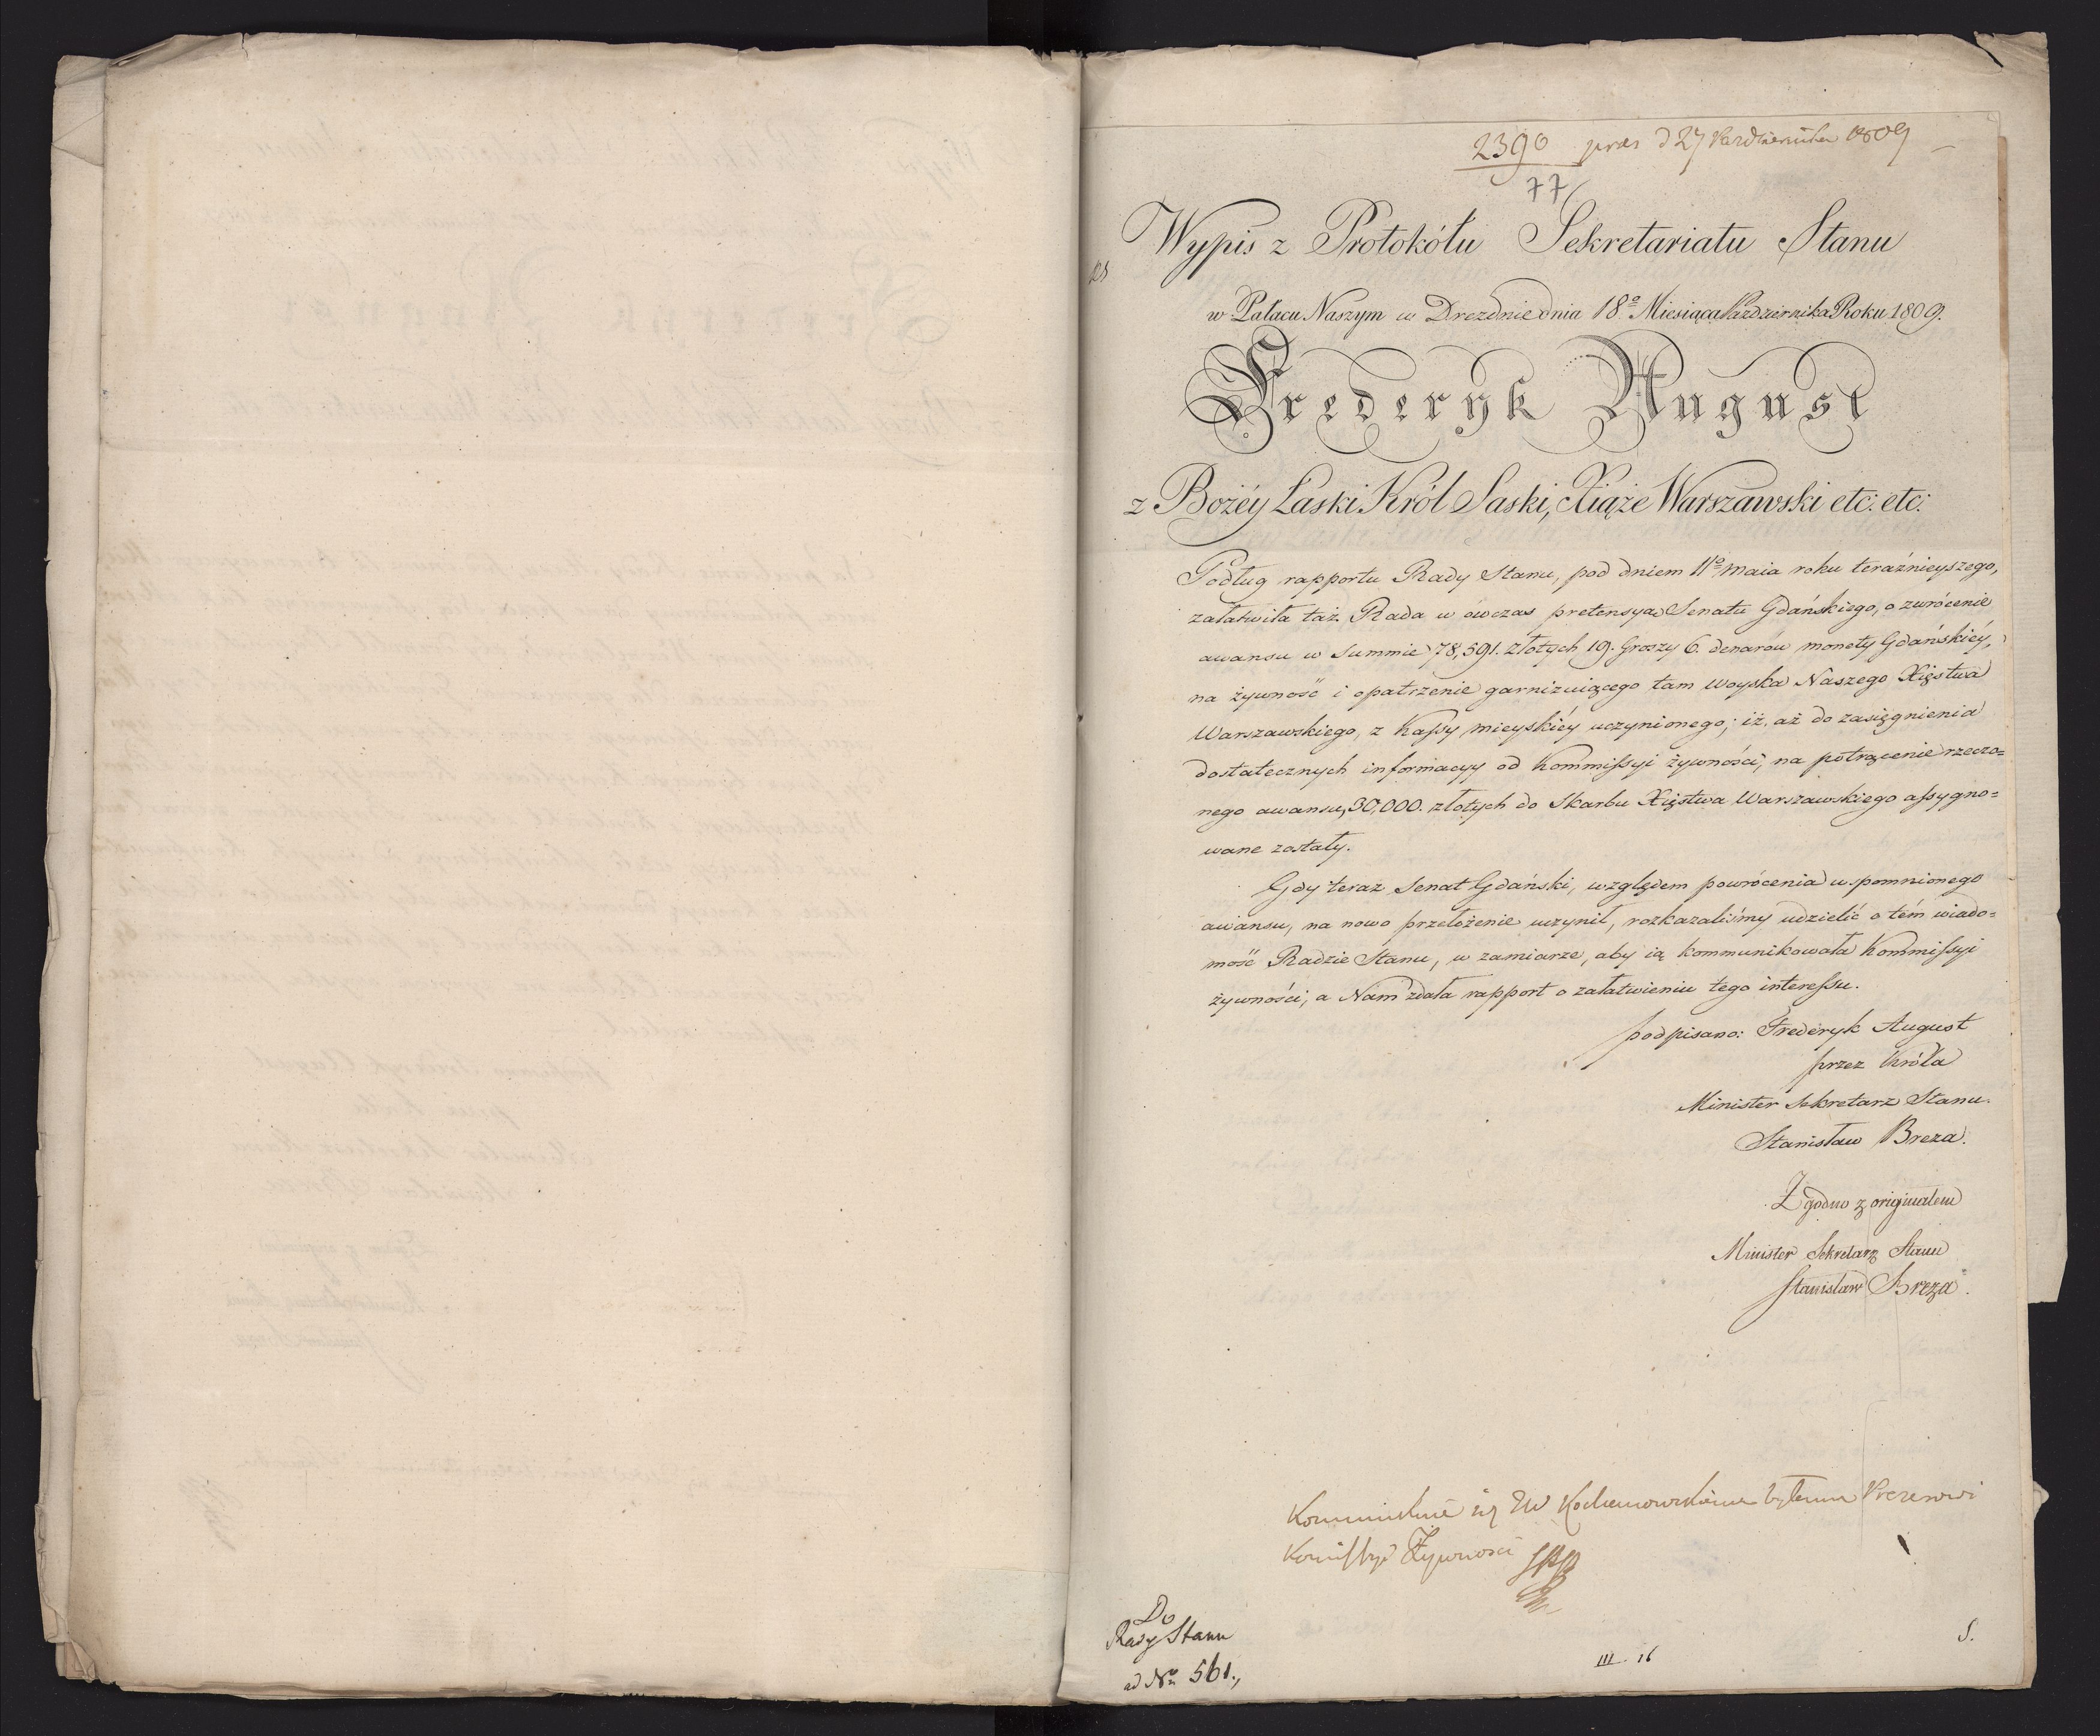 2390 prez d 27 Października 1809
77
Wypis z Protokółu Sekretariatu Stanu
w Pałacu Naszym w Dreznie dnia 18º Miesiąca Października Roku 1809.
Frederyk August
z Bożéy Łaski Król Saski, Xiąże Warszawski etc: etc:
Podług rapportu Rady Stanu, pod dniem 11º maia roku teraźnieyszego,
załatwiła taż Rada w ówczas pretensyą Senatu Gdańskiego, o zwrócenie
awansu w Summie 78,591. złotych 19. groszy 6. denarów monety Gdańskiéy,
na żywność i opatrzenie garnizuiącego tam woyska Naszego Xięstwa
Warszawskiego, z kassy mieyskiéy uczynionego; iż, aż do zasięgnienia
dostatecznych informacyy od kommissyi żywności, na potrącenie rzeczo=
nego awansu, 30,000. złotych do Skarbu Xięstwa Warszawskiego assygno=
wane zostały.
Gdy teraz Senat Gdański, względem powrócenia wspomnionego
awansu, na nowo przełożenie uczynił, rozkazaliśmy udzielić o tém wiado=
mość Radzie Stanu, w zamiarze, aby ią kommunikowała kommissyi
żywności, a Nam zdała rapport o załatwieniu tego interessu.
podpisano: Frederyk August
przez Króla
Minister Sekretarz Stanu.
Stanisław Breza.
Zgodno z originałem
Minister Sekretarz Stanu
Stanisław Breza.
JW Kochanowskiemu byłemu Prezesowi
Komissyi Żywności
Do
Rady Stanu
ad Nº 561.,
III 16
S.